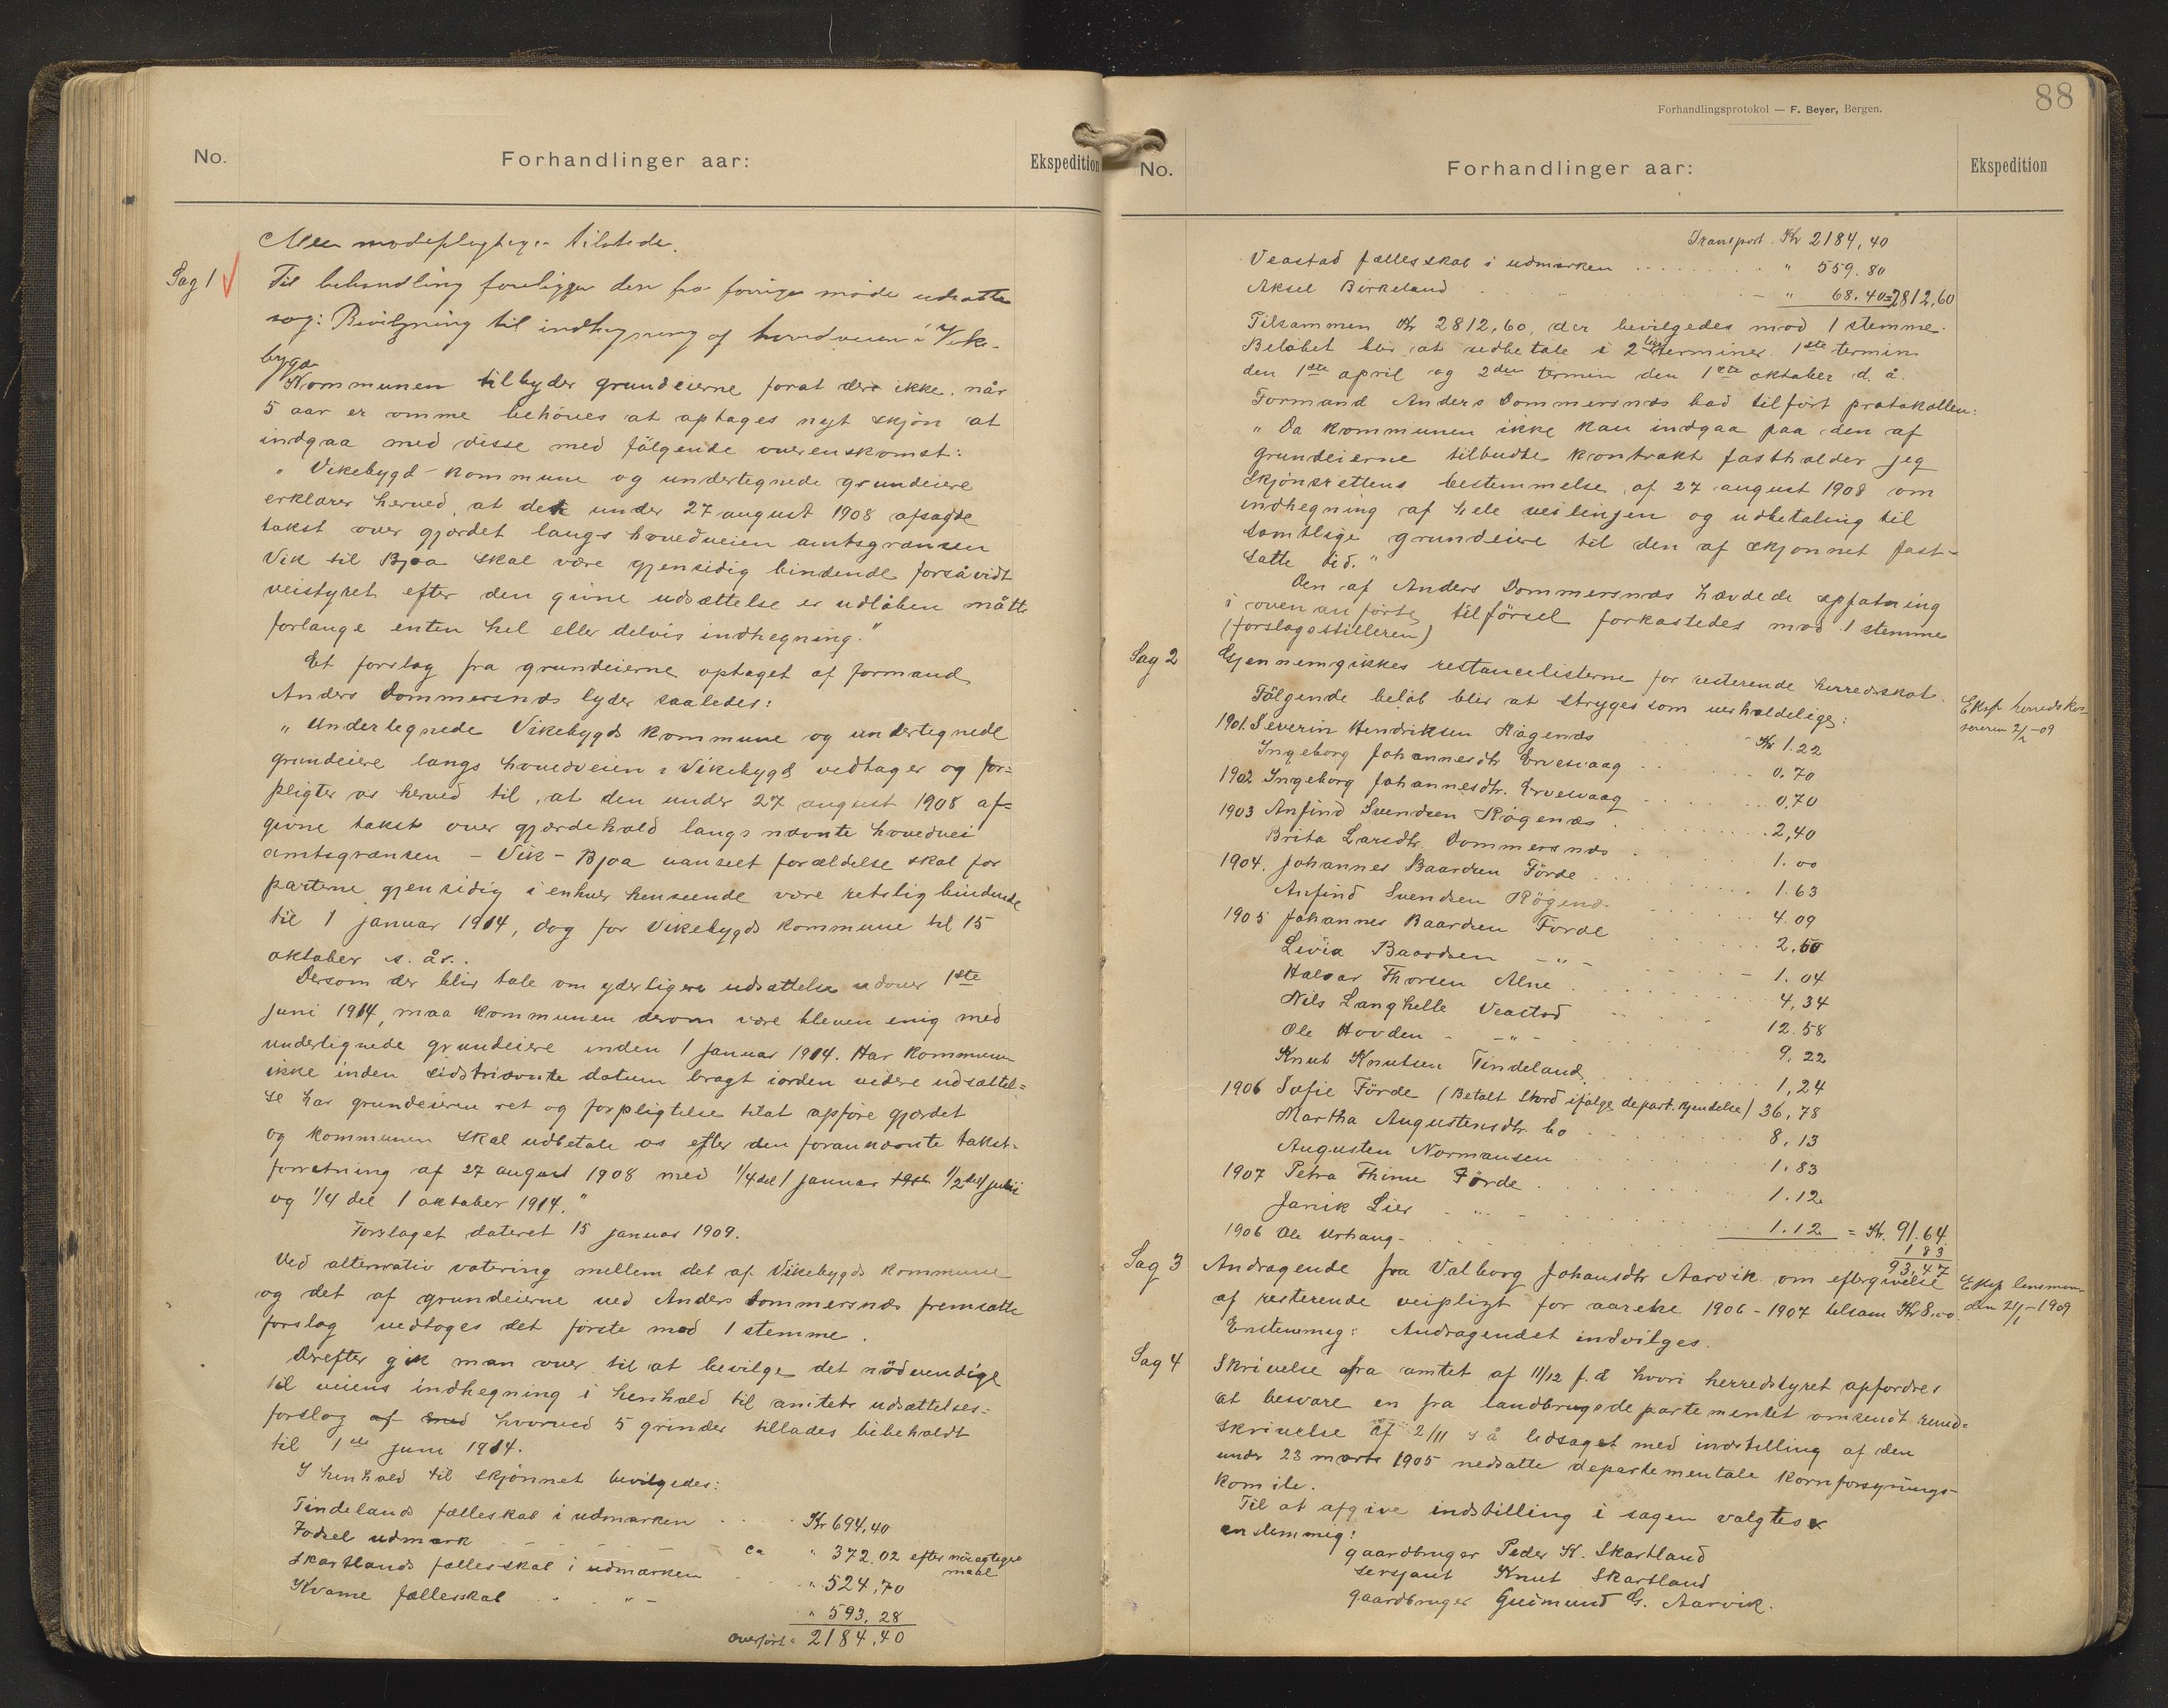 No.
Forhandlinger aar:
Ekspedition
Alle mødepligtige tilstede.
Sag 1
Til behandling foreligger den fra forrige møde udsatte
sag: Bevilgning til indhegning af hovedveien i Vike-
bygd
Kommunen tilbyder grundeierne forat der ikke, når
5 aar er omme behöves at optages nyt skjön at
indgaa med disse med fölgende overenskomst:
„Vikebygd-kommune og undertegnede grundeiere
erklærer herved, at den under 27 august 1908 afsagde
takst over gjærdet langs hovedveien amtsgrænsen
Vik til Bjoa skal være gjensidig bindende forsåvidt
veistyret efter den givne udsættelse er udlöben måtte
forlange enten hel eller delvis indhegning."
Et forslag fra grundeierne optaget af formand
Anders Dommersnæs lyder saaledes:
„Undertegnede Vikebygds kommune og undertegnede
grundeiere langs hovedveien i Vikebygd vedtager og for=
pligter os herved til, at den under 27 august 1908 af=
givne takst over gjærdehold langs nævnte hovedvei
amtsgrænsen – Vik – Bjoa uanseet forældelse skal for
parterne gjensidig i enhver henseende være retslig bindende
til 1 januar 1914, dog for Vikebygds kommune til 15
oktober s. år..
Dersom der blir tale om yderligere udsættelse udover 1ste
juni 1914, maa kommunen derom være bleven enig med
undertegnede grundeiere inden 1 januar 1914. Har kommunen
ikke inden sidstnævnte datum bragt iorden videre udsættel=
se har grundeieren ret og forpligtelse tilat opføre gjærdet
og kommunen skal udbetale os efter den forannævnte takst-
forretning af 27 august 1908 med 1/4 del 1 januar 1/2 del 1 juni
og 1/4 del 1 oktober 1914."
Forslaget dateret 15 januar 1909.
Ved alternativ votering mellem det af Vikebygds kommune
og det af grundeierne ved Anders Dommersnæs fremsatte
forslag vedtoges det første mod 1 stemme.
Derefter gik man over til at bevilge det nödvendige
til veiens indhegning i henhold til amtets udsættelses=
forslag hvorved 5 grinder tillades bibeholdt
til 1ste juni 1914.
I henhold til skjönnet bevilgedes:
Tindelands fælleskab i udmarken . . . Kr 694,40
Fodsel udmark ca " 372.02 efter nöiagtigere maal
Skartlands fællesskab i udmarken " 524,70
Kvame fællesskab . . " – " 593,28
overfört " 2184,40
Forhandlingsprotokol — F. Beyer, Bergen.
88
No.
Forhandlinger aar:
Ekspedition
Transport. Kr 2184,40
Veastad fællesskab i udmarken . . . " 559.80
Aksel Birkeland – " 68.40=2812,60
Tilsammen Kr 2812,60, der bevilgedes mod 1 stemme.
Belöbet blir at udbetale i 2 lige terminer. 1ste termin
den 1ste april og 2den termin den 1ste oktober d. å.
Formand Anders Dommersnæs bad tilfört protokollen:
„Da kommunen ikke kan indgaa paa den af
grundeierne tilbudte kontrakt fastholder jeg
skjönsrettens bestemmelse af 27 august 1908 om
indhegning af hele veilinjen og udbetaling til
samtlige grundeiere til den af skjönnet fast-
satte tid."
Den af Anders Dommersnæs hævdede opfatning
i ovenanförte tilförsel forkastedes mod 1 stemme
(forslagsstilleren)
Sag 2
Gjennemgikkes restancelisterne for resterende herredsskat.
Fölgende belöb blir at stryges som uerholdelige:
Eksp. herredskas-
sereren 2/2-09
1901. Severin Hendriksen Rögenæs Kr 1.22
Ingeborg Johannesdtr Ervesvaag . . 0.70
1902 Ingeborg Johannesdtr. Ervesvaag . . 0,70
1903 Anfind Svendsen Rögenæs . . 2,40
Brita Larsdtr. Dommersnæs . . 1.00
1904. Johannes Baardsen Förde . . 1.63
Anfind Svendsen Rögenæs . . 4.09
1905 Johannes Baardsen Förde . . 2.50
Livia Baardsen – " – 1.04
Halvar Thorsen Alne . . 4,34
Nils Langhelle Veastad . . 12.58
Ole Hovden – " – 9,22
Knut Knutsen Tindeland . . 1,24
1906 Sofie Förde (Betalt Stord ifölge depart. kjendelse) 36,78
Martha Augustensdtr. bo . . 8.13
Augusten Normansen . . 1.83
1907 Petra Thime Förde . . 1.12
Janik Lier – " – 1.12 = Kr. 91.64
1906 Ole Urhaug – . . 1 83
93,47
Sag 3
Andragende fra Valborg Johansdtr Aarvik om eftergivelse
af resterende veipligt for aarene 1906-1907 tilsam Kr 8.00.
Eksp. lensman-
den 21/1-1909
Enstemmig: Andragendet indvilges.
Sag 4
Skrivelse fra amtet af 11/12 f. å hvori herredstyret opfordres
at besvare en fra landbrugsdepartementet omsendt rund=
skrivelse af 2/11 s å ledsaget med indstilling af den
under 23 marts 1905 nedsatte departementale kornforsynings-
komite.
Til at afgive indstilling i sagen valgtes
enstemmig:
gaardbruger Peder K. Skartland
sersjant Knut Skartland
gaardbruger Gudmund G. Aarvik.